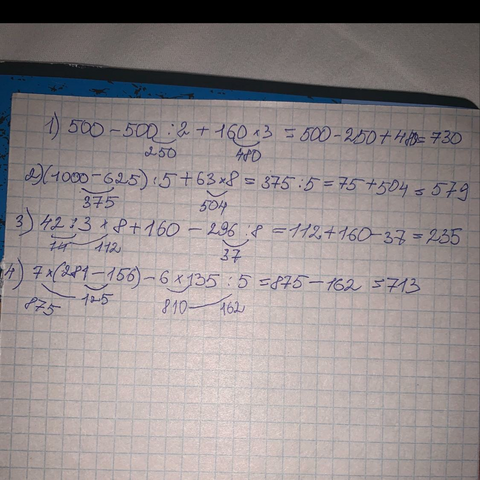 1) 500 - 500 : 2 + 160 × 3 = 500 - 250 + 480 = 730
250 480
2) (1000 - 625) : 5 + 63 × 8 = 375 : 5 = 75 + 504 = 579
375 504
3) 42 : 3 × 8 + 160 - 296 : 8 = 112 + 160 - 37 = 235
14 112 37
4) 7 × (281 - 156) - 6 × 135 : 5 = 875 - 162 = 713
875 125 810 162